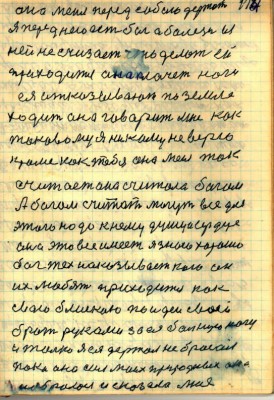 она меня перед собою держит
я перед нею бога
ней не считает что делат ей
приходится она плачет ноги
ея отказывают по земле
ходит она говарит мне как
таковому я никому не верю
кроме как тебя она меня так
считает она считала богом
А богом считат могут все для
этого надо к нему душу и сердце
она это все имеет я знаю хорошо
бог тех наказывает кого он
их любят приходится как
свою близкаю по идеи своей
брат руками за ея больную ногу
и только я ея держал не бросал
пока она сил моих природных она
набралась и сказала мня